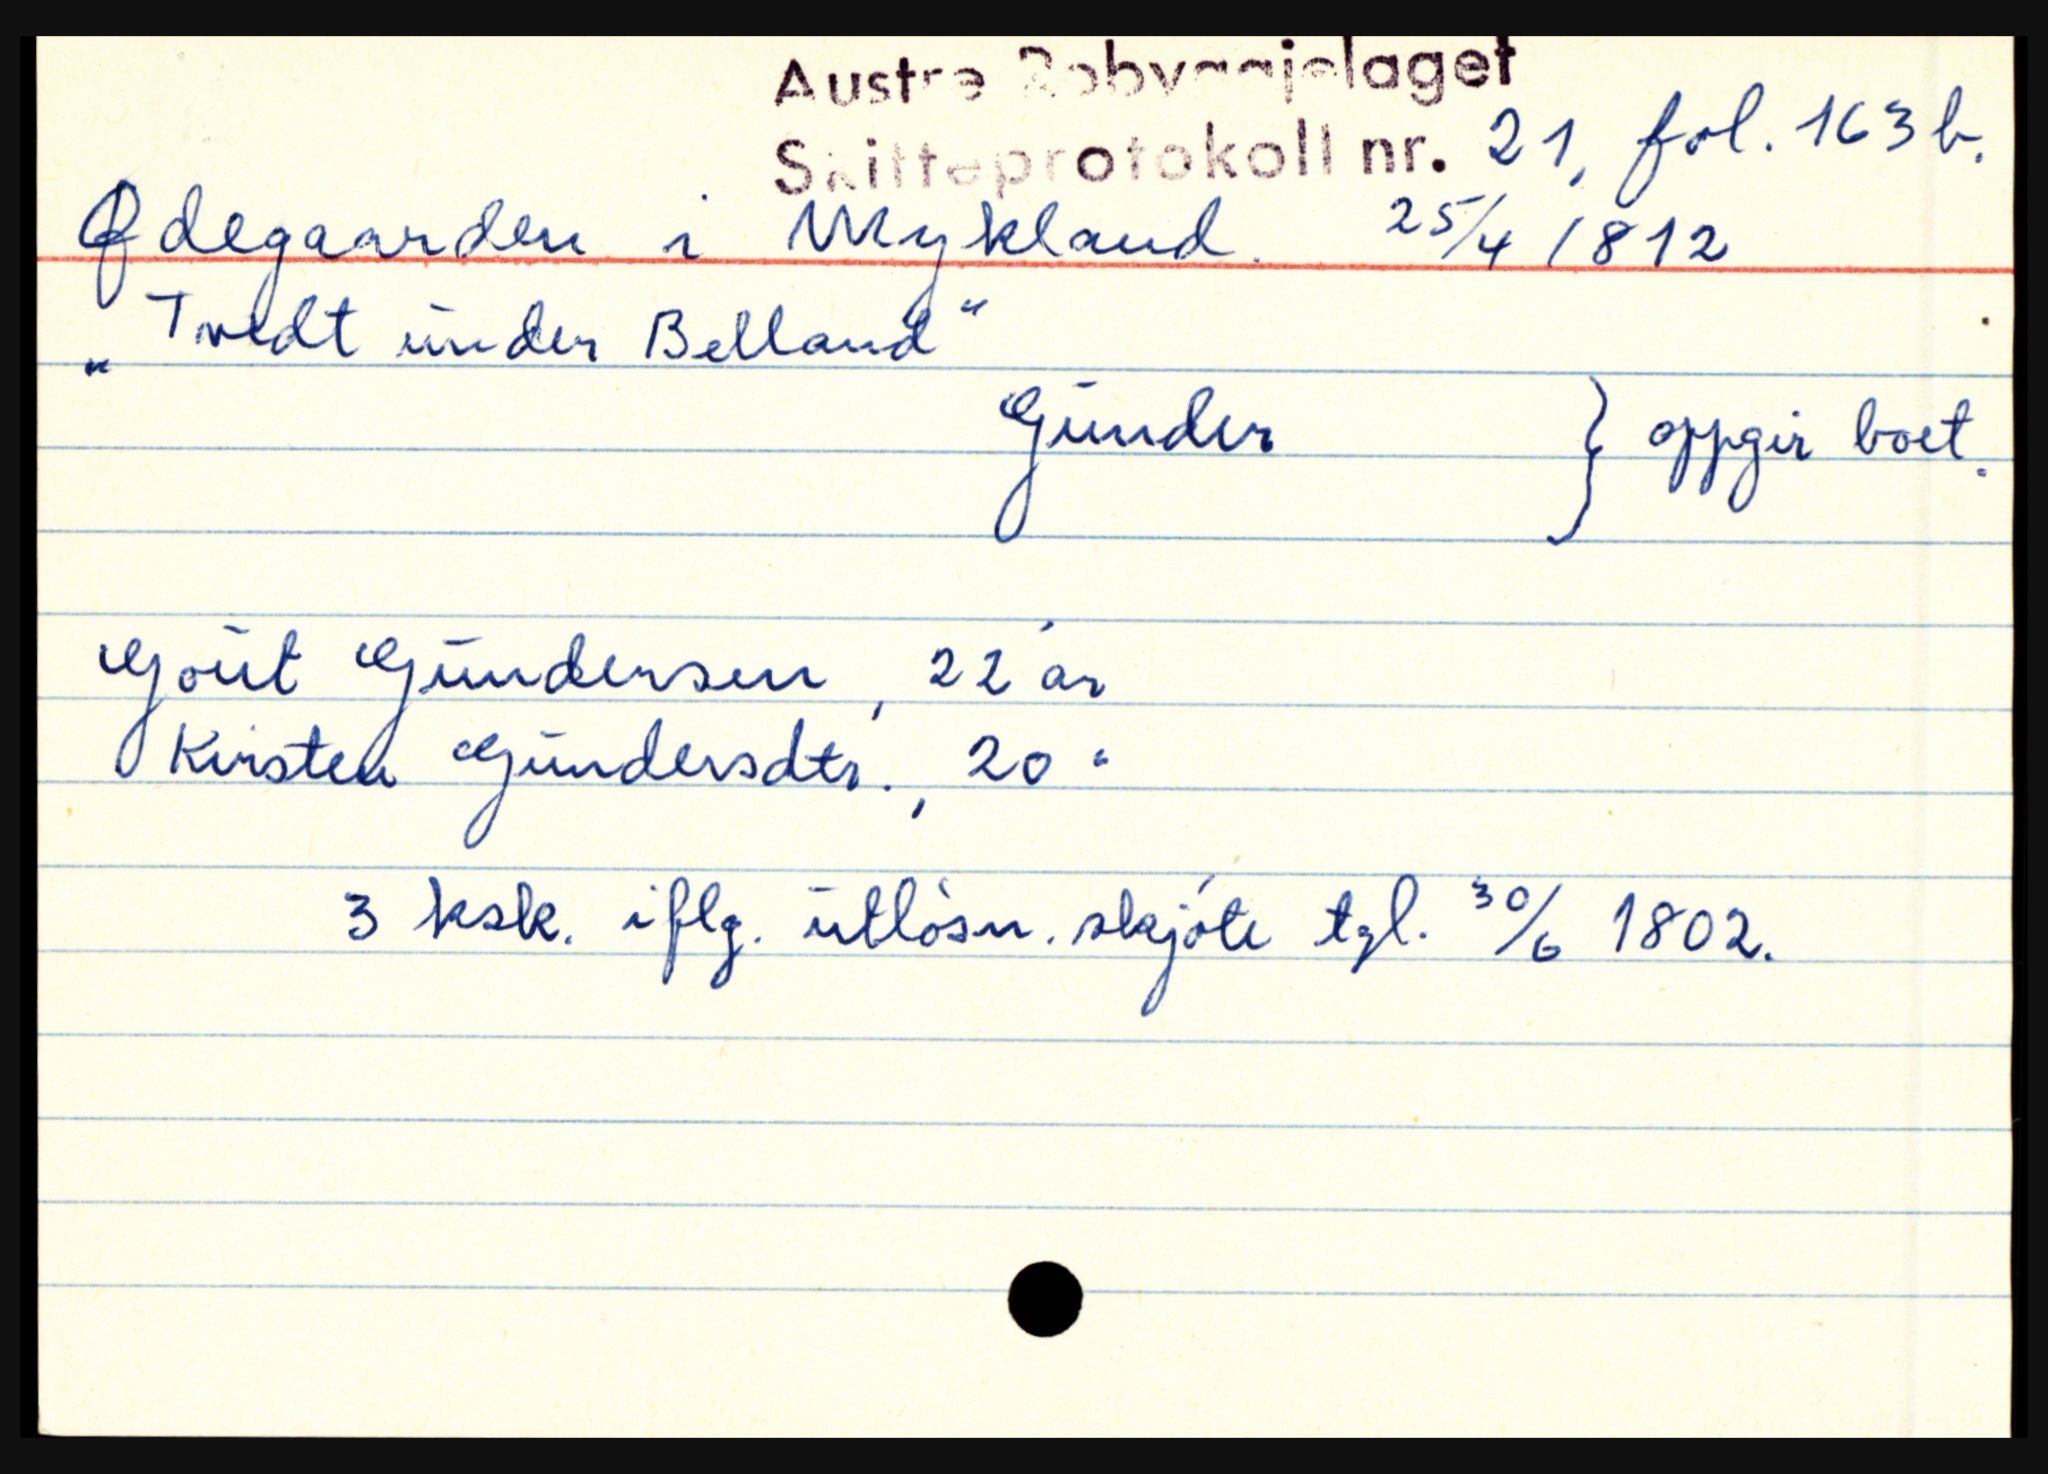 Austre Robyggjelaget
Skifteprotokoll nr. 21, fol. 163 b.
Ødegaarden i Mykland. 25/4 1812
"Tvedt under Belland"
Gunder } oppgir boet.
Gout Gundersen, 22 år
Kirsten Gundersdtr., 20 "
3 ksk. iflg. utløsn. skjøte tgl. 30/6 1802.